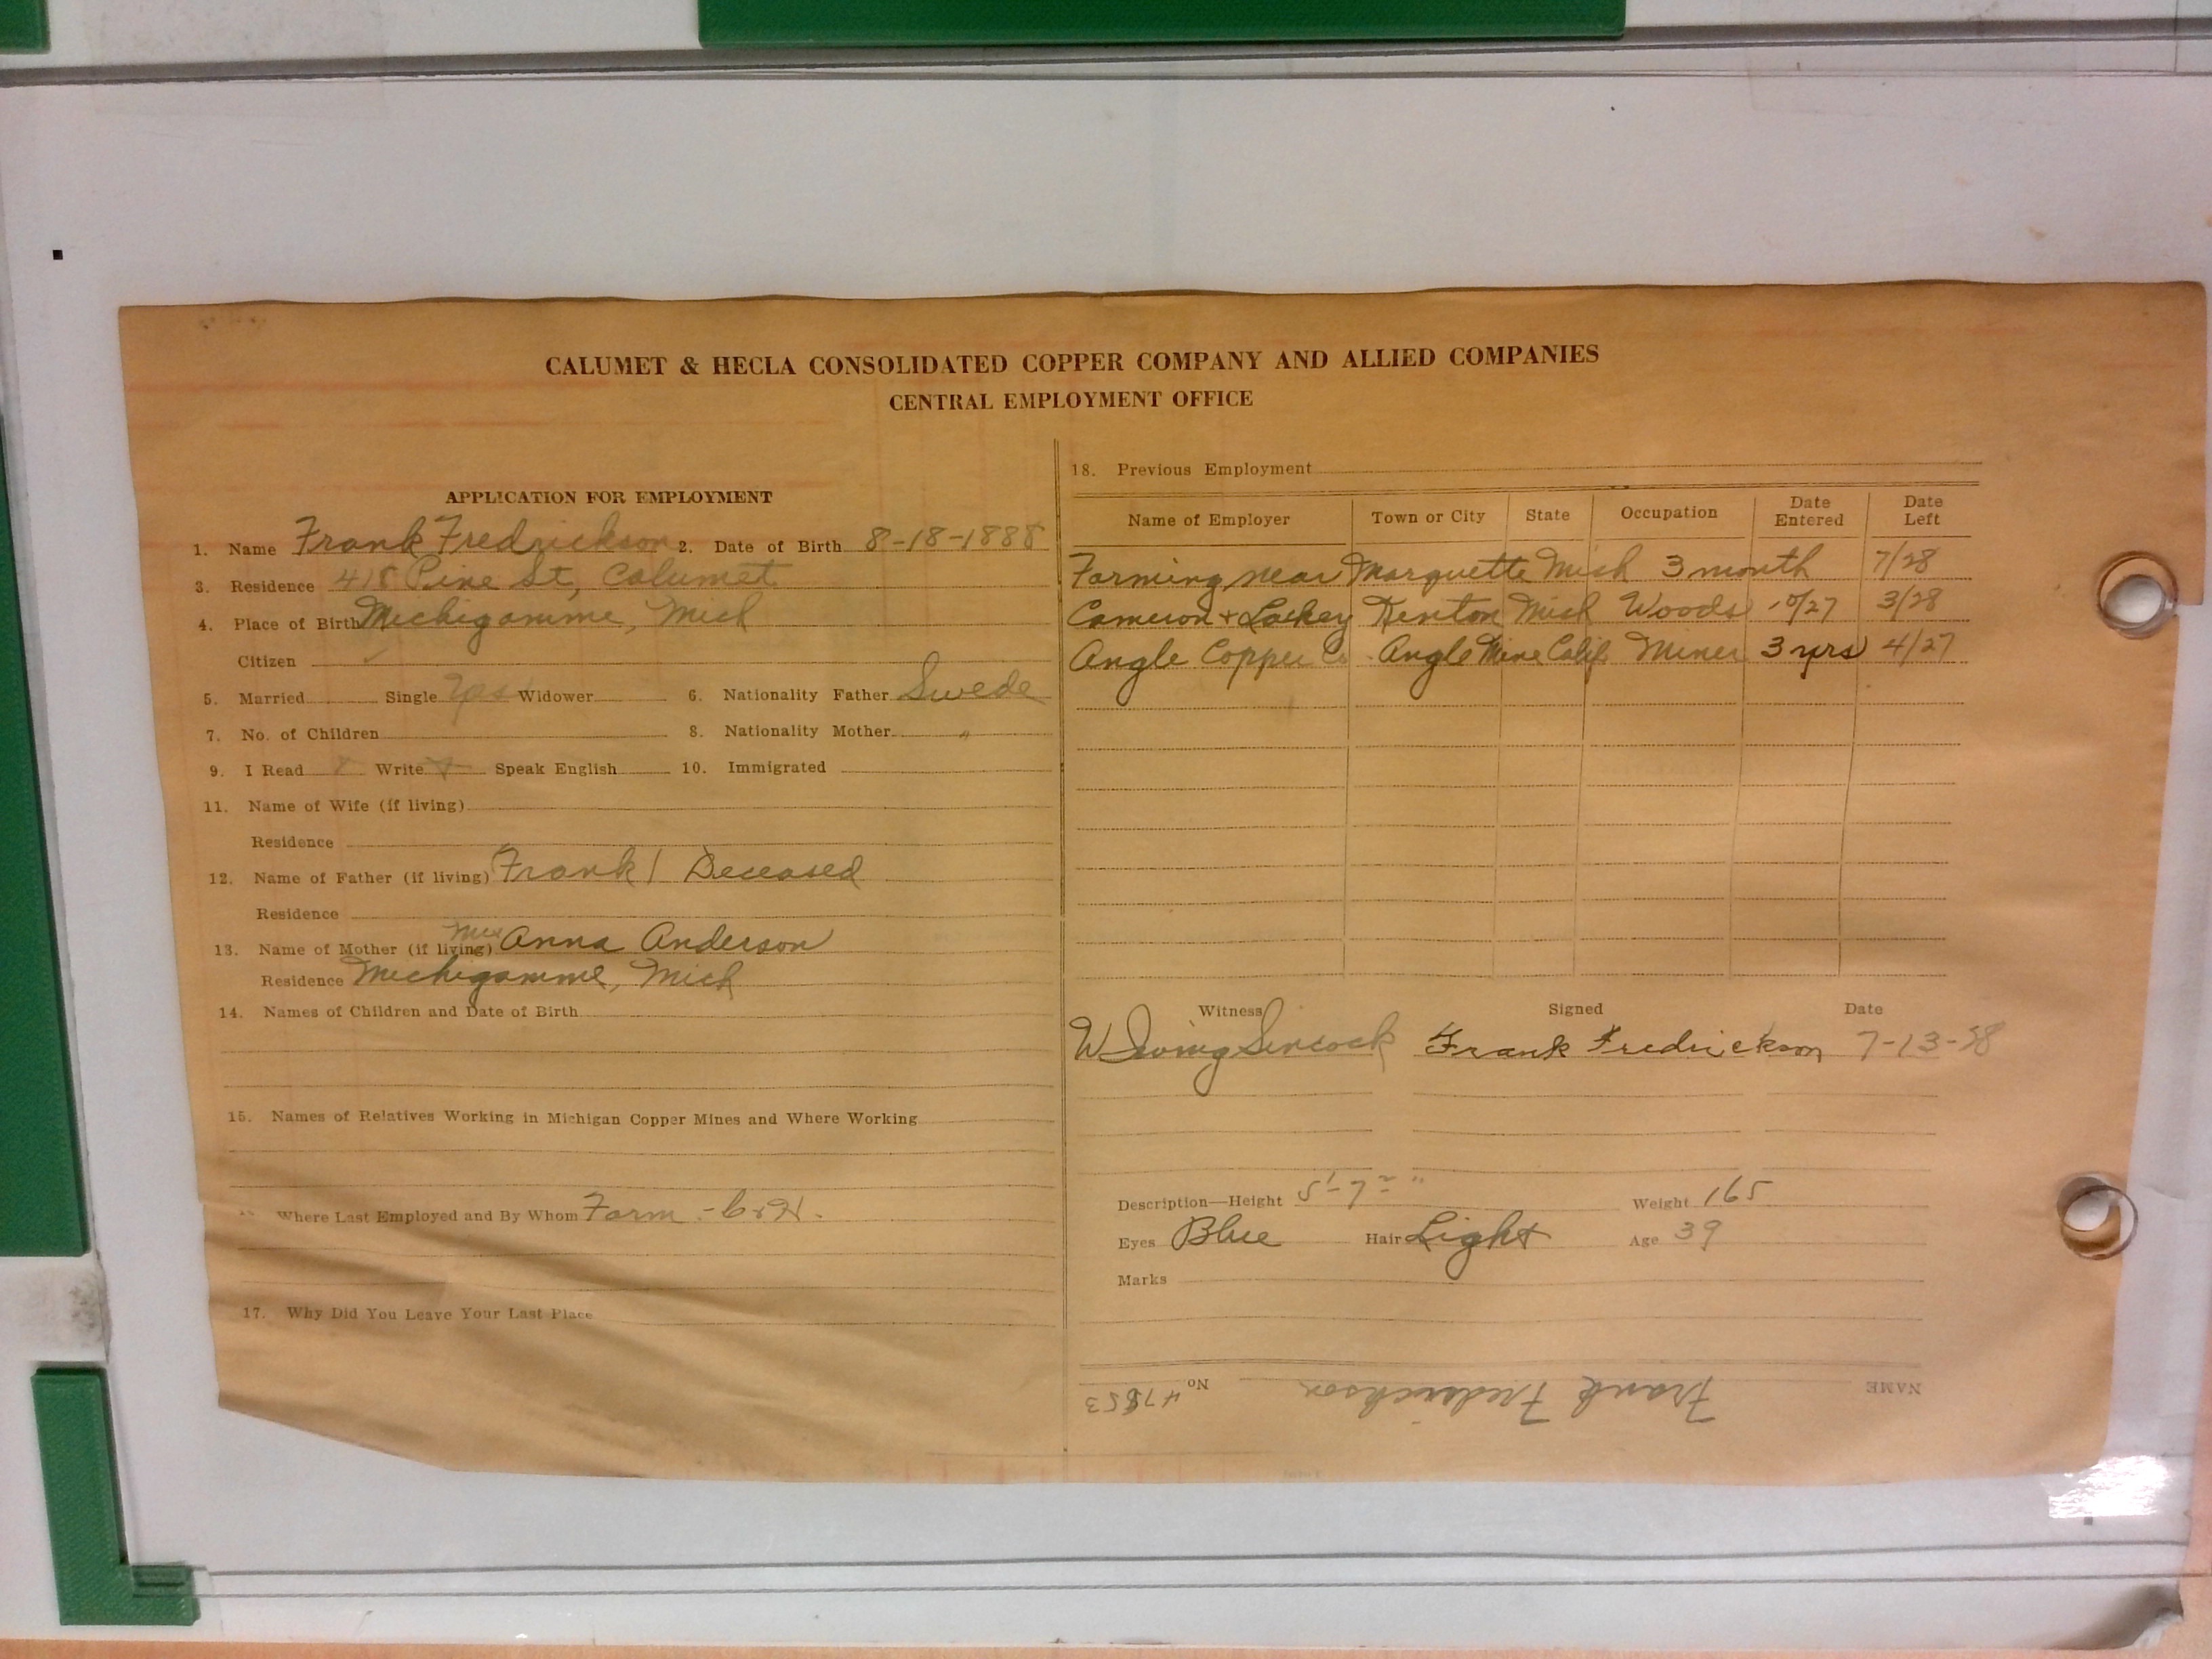 CALUMET & HECLA CONSOLIDATED COPPER COMPANY AND ALLIED COMPANIES
CENTRAL EMPLOYMENT OFFICE
APPLICATION FOR EMPLOYMENT
1. Name Frank Fredrickson 2. Date of Birth 8-18-1888
3. Residence 418 Pine St, Calumet
4. Place of Birth Michigamme, Mich
Citizen ✓
5. Married Single yes Widower 6. Nationality Father Swede
7. No. of Children 8. Nationality Mother "
9. I Read x Write x Speak English 10. Immigrated
11. Name of Wife (if living)
Residence
12. Name of Father (if living) Frank / Deceased
Residence
13. Name of Mother (if living) Mrs Anna Anderson
Residence Michigamme, Mich
14. Names of Children and Date of Birth
15. Names of Relatives Working in Michigan Copper Mines and Where Working
Where Last Employed and By Whom Farm - C & H.
17. Why Did You Leave Your Last Place
18. Previous Employment
Name of Employer Town or City State Occupation Date Entered Date Left
Farming near Marquette Mich 3 month 7/28
Cameron + Kenton Mich Woods 10/27 3/28
Angle Copper Co. Angle Mine Calif. Miner 3 yrs 4/27
Witness Signed Date
W Irving Sincock Frank Fredrickson 7-13-28
Description—Height 5'-7" Weight 165
Eyes Blue Hair Light Age 39
Marks
NAME Frank Fredrickson No 47853